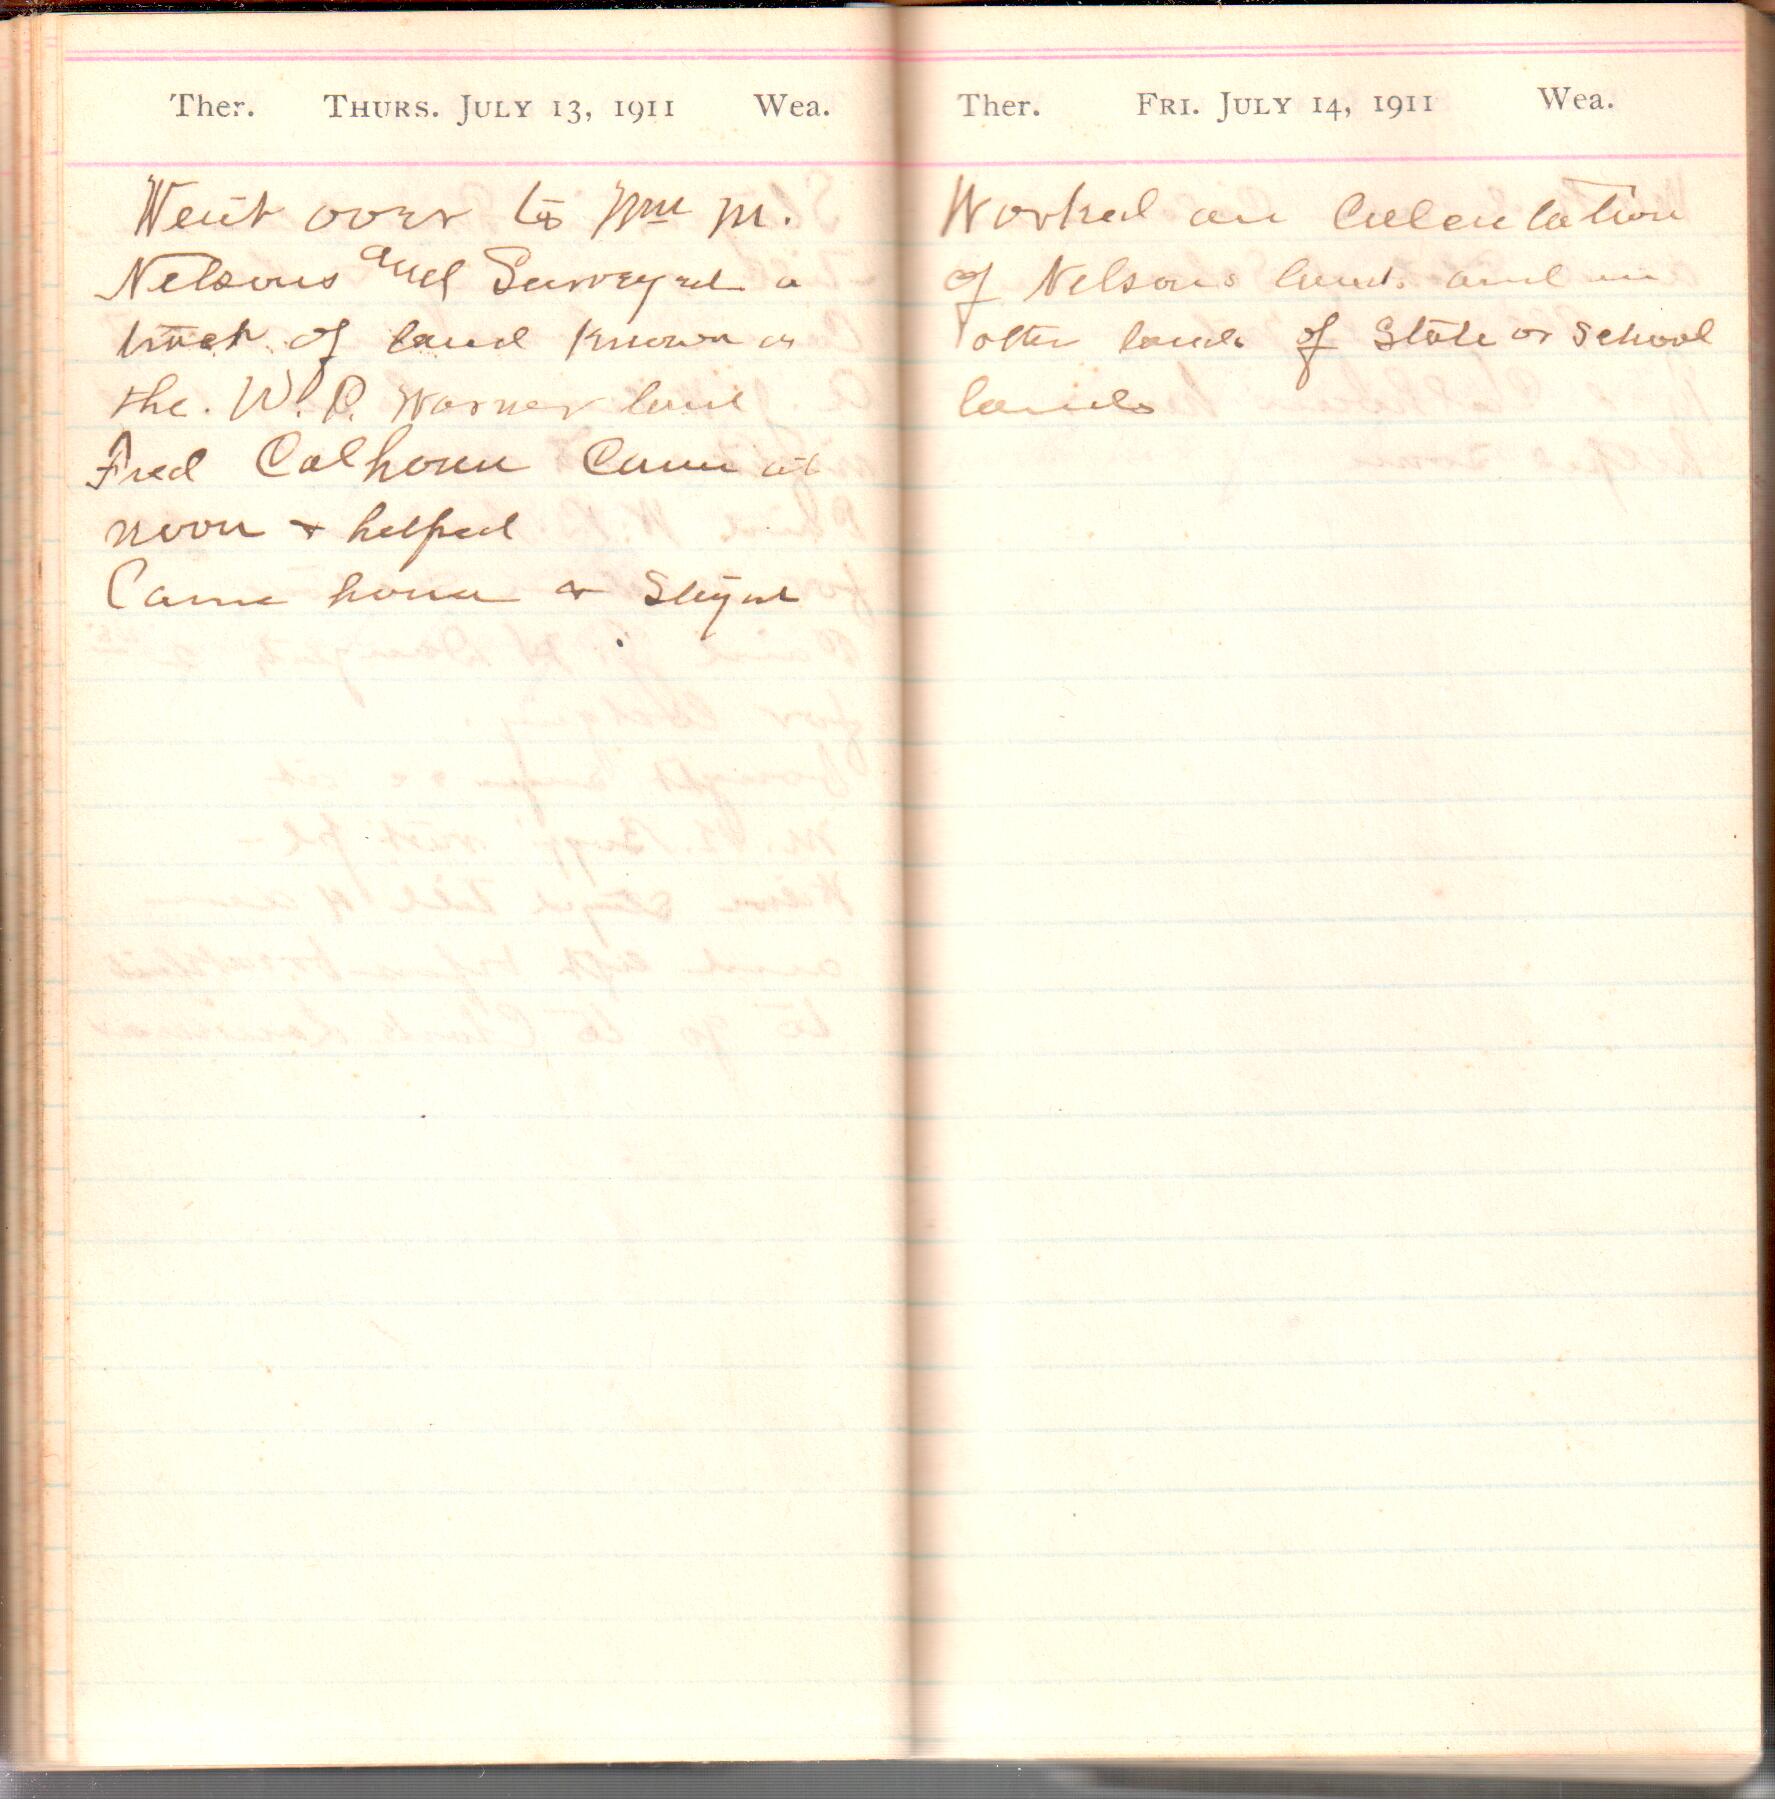 Ther. THURS. JULY 13, 1911 Wea.
Went over to Wm M.
Nelsons and Surveyed a
tract of land known as
the W. P. Warner land
Fred Calhoun Came at
noon & helped
Came home & Stayed
Ther. FRI. JULY 14, 1911 Wea.
Worked on Calculation
of Nelsons land. and on
other lands of State or School
lands